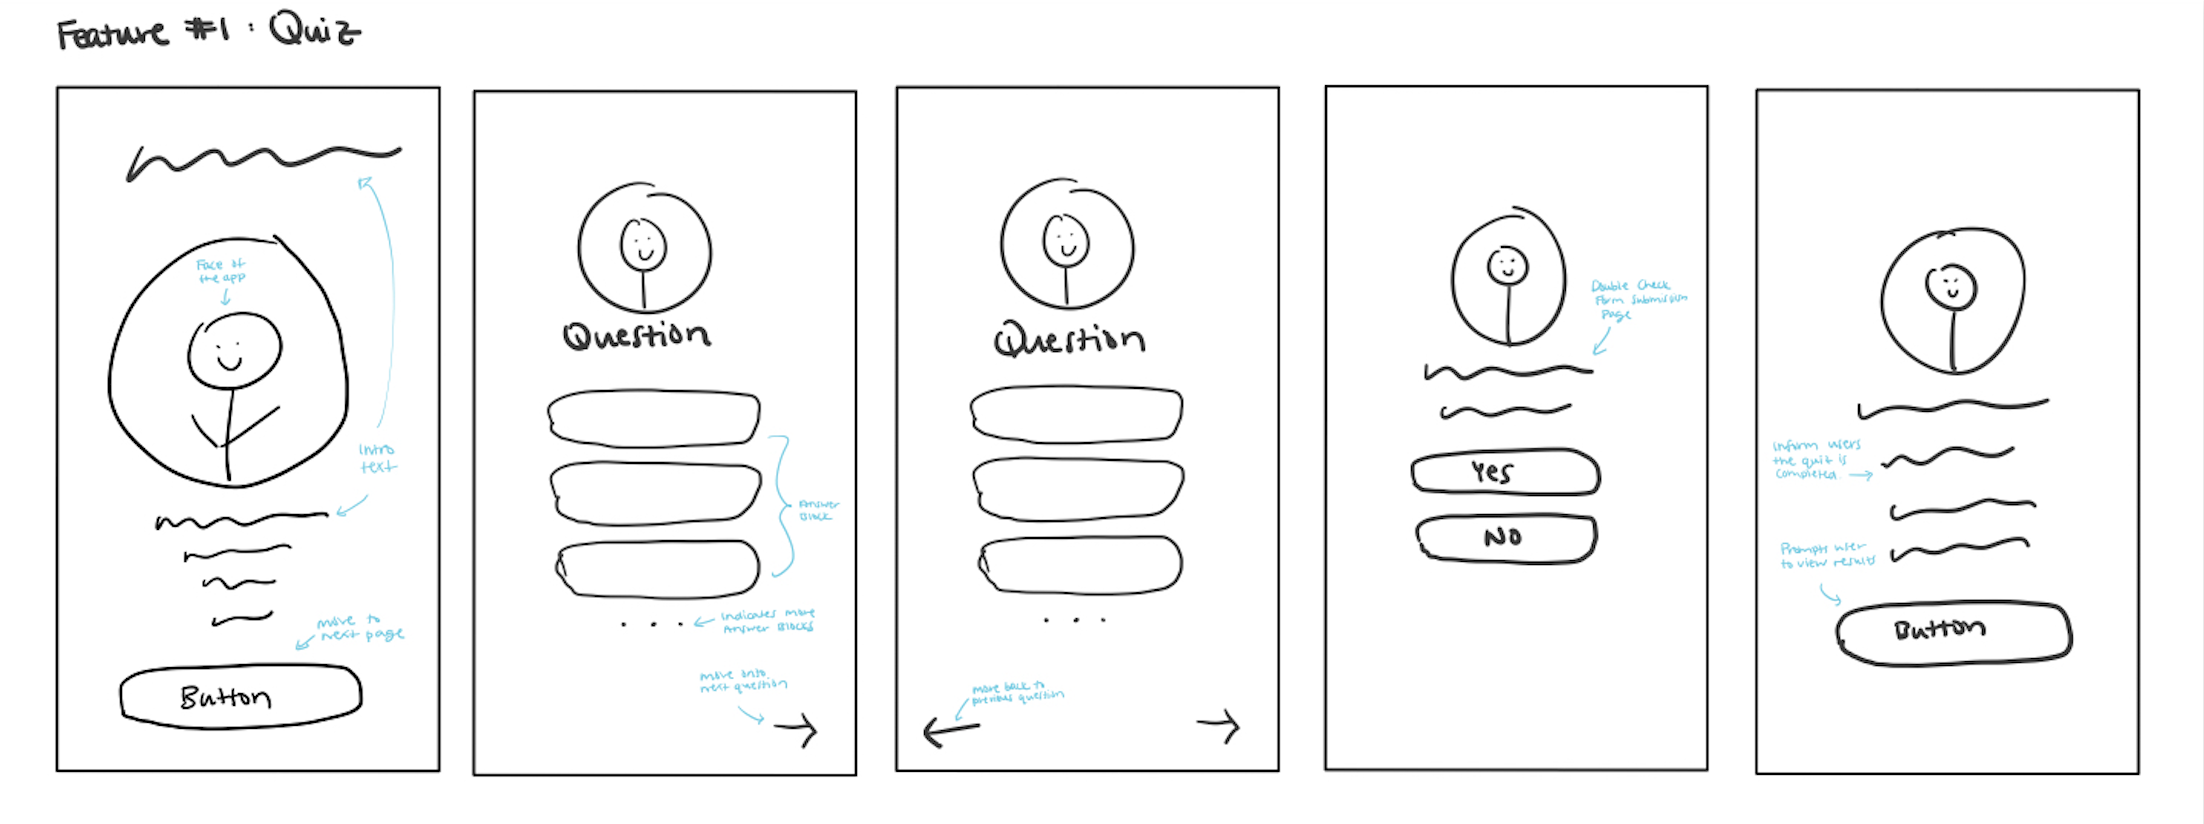 Feature #1 : Quiz
Face of
the app
Intro
text
move to
next page
Button
Question
Answer
Block
... Indicates more
Answer Blocks
move onto
next question
Question
...
move back to
previous question
Double Check
Form Submission
Page
Yes
No
Inform users
the quit is
completed.
Prompts user
to view results
Button